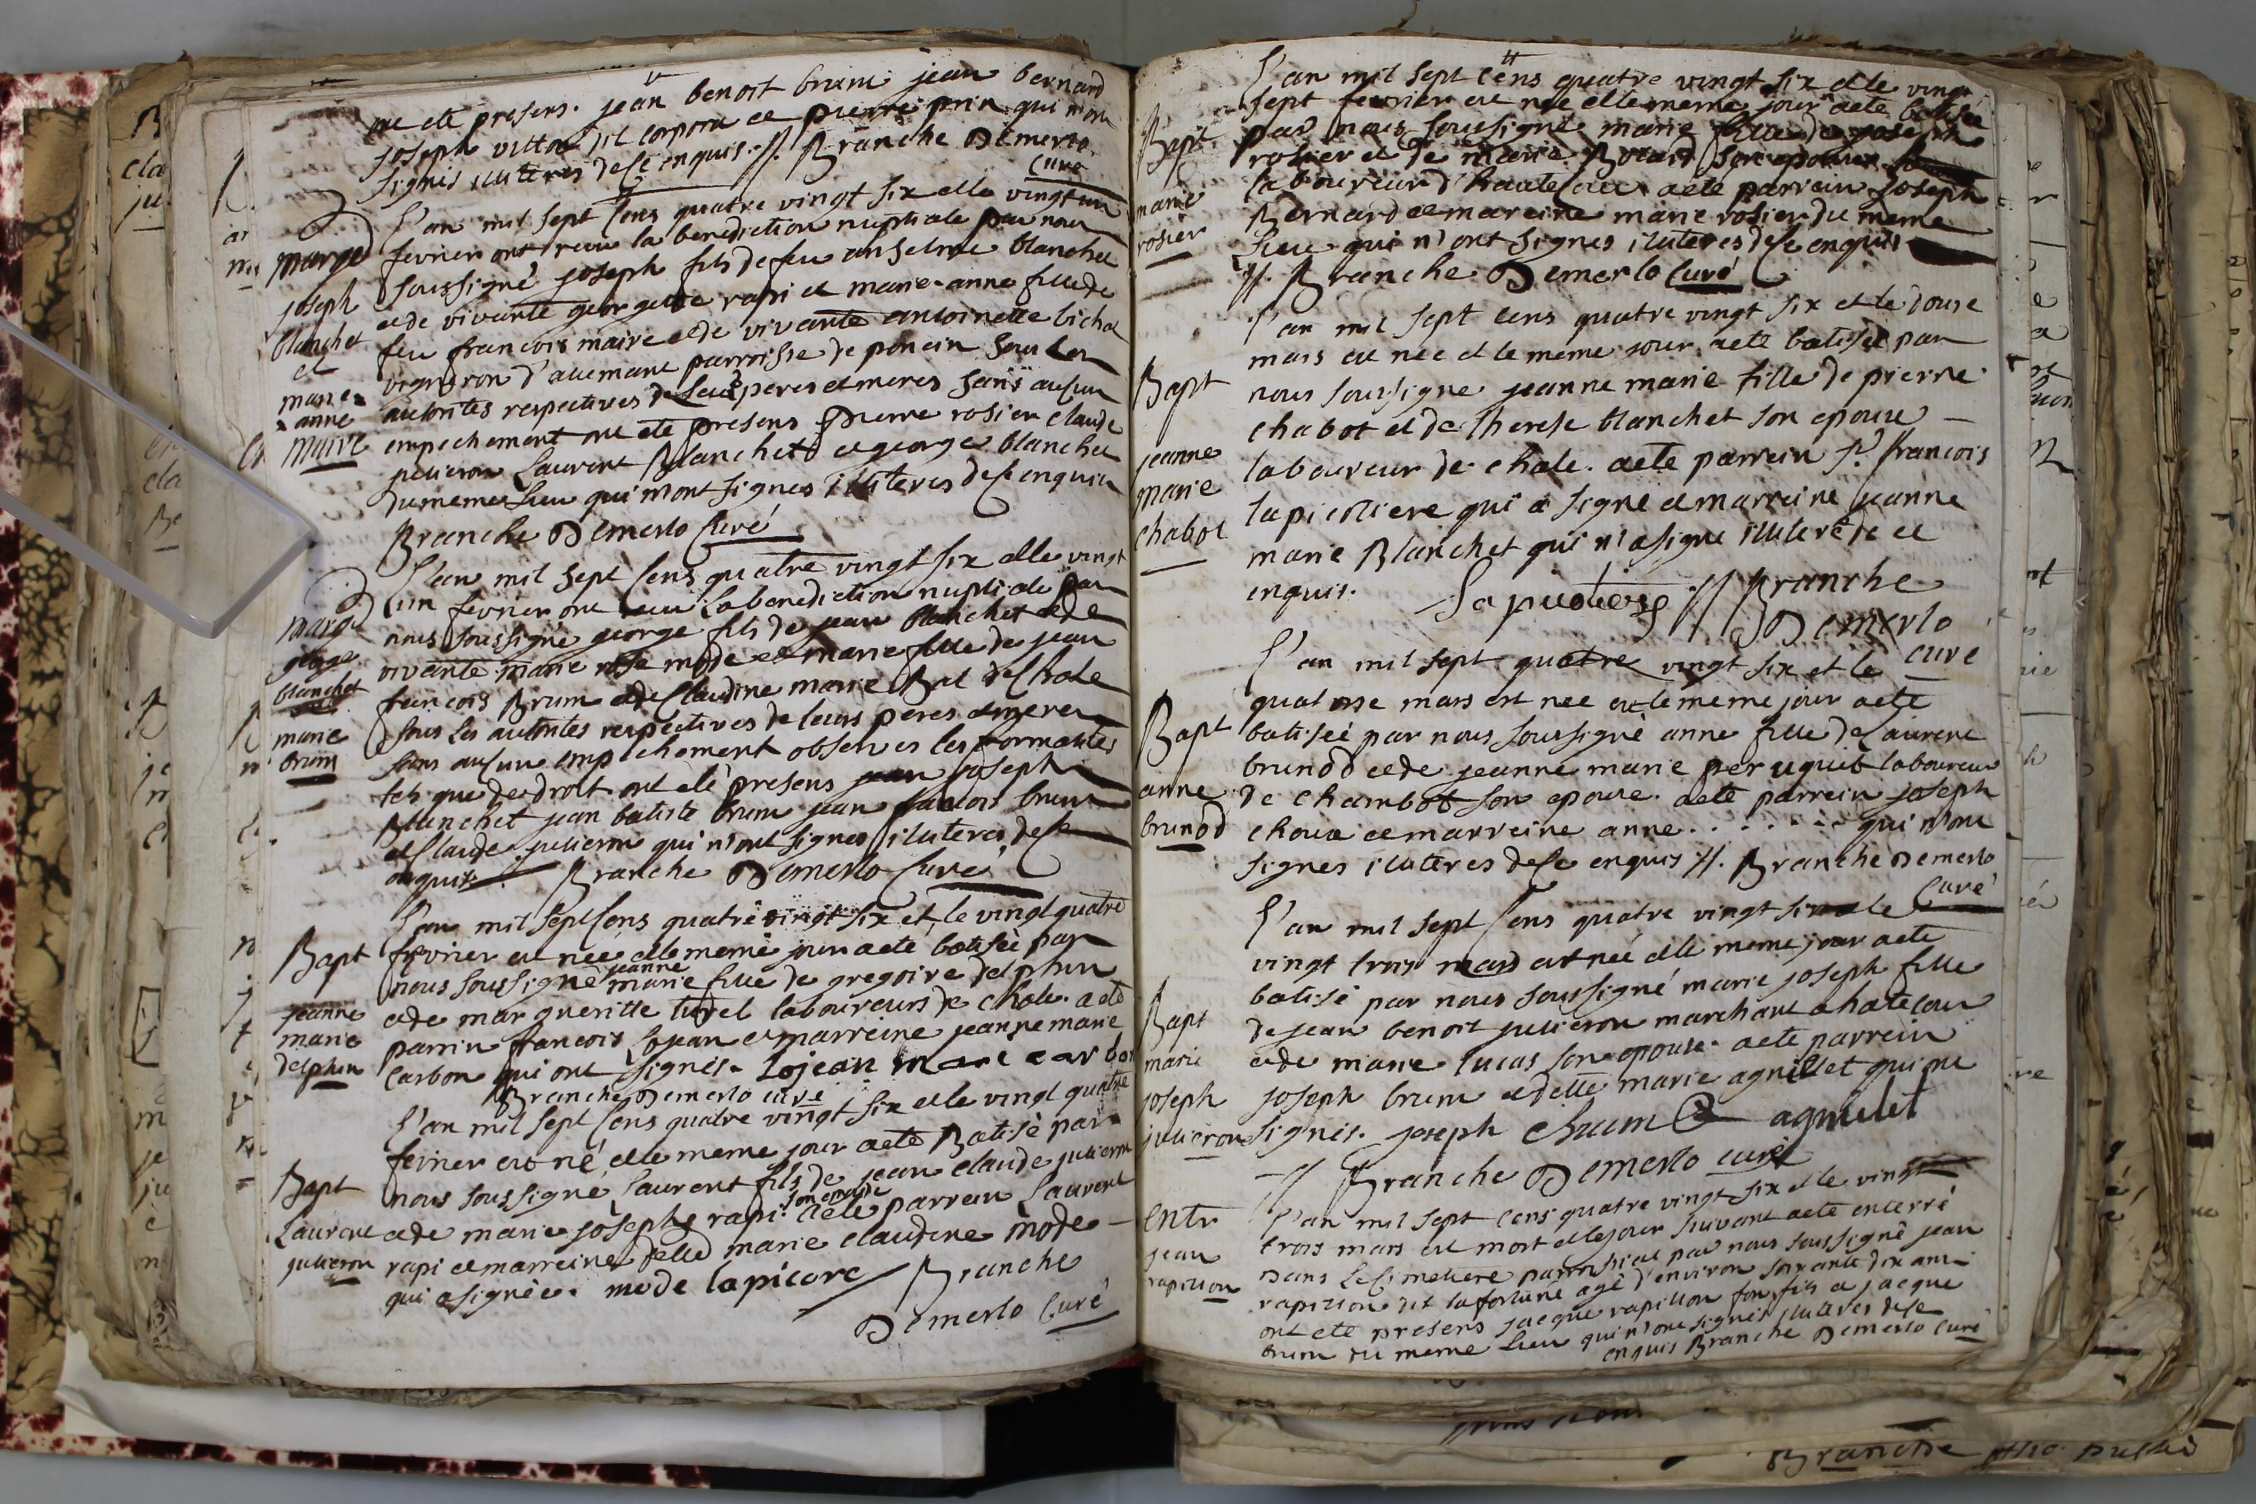 ont ete presens. jean benoit brum jean bernard
joseph vittot dit corporu et pierre prin qui n'ont
signés illiteres de ce enquis. Branche Demerlo
curé
mariage
joseph
blanchet
et
marie
anne
maire
L'an mil sept cens quatre vingt six et le vingt un
fevrier ont recu la benediction nuptiale par nous
soussigné joseph fils de feu anselme blanchet
et de vivante georgette rapi et marie anne fille de
feu francois maire et de vivante antoinette bichat
vigneron d'allemant parroisse de poncin sous les
autorités respectives de leurs peres et meres sans aucun
empechement ont ete presens pierre rosier claude
julieron laurent Blanchet et george blanchet
du meme lieu qui n'ont signes illiteres de ce enquis
Branche Demerlo Curé
mariage
george
blanchet
marie
brum
L'an mil sept cens quatre vingt six et le vingt
un fevrier ont recu la benediction nuptiale par
nous soussigné george fils de jean blanchet et de
vivante marie rose mode et marie fille de jean
francois Brum et de Claudine marie Bul de Chale
sous les autorités respectives de leurs peres et meres
sans aucun empechement observés les formalités
tels que de droit ont eté presens jean joseph
Blanchet jean batiste brum jean francois brum
et Claude julieron qui n'ont signes illiteres de ce
enquis Branche Demerlo Curé
Bapt
jeanne
marie
delphin
L'an mil sept cens quatre vingt six et le vingt quatre
fevrier est née et le meme jour a ete batisée par
jeanne
nous soussigné marie fille de gregoire delphin
et de margueritte turel laboureurs de Chale. a eté
parrin francois Lojean et marreine jeanne marie
Carbon qui ont signés. Lojean marie carbon
Branche Demerlo curé
Bapt
Laurent
julieron
L'an mil sept cens quatre vingt six et le vingt quatre
fevrier est né et le meme jour a eté Batisé par
nous soussigné Laurent fils de jean claude julieron
son epouse
et de marie joseph rapi. a ete parrein Laurent
rapi et marreine delle marie claudine mode
qui a signée. mode lapicore Branche
Demerlo Curé
Bapt
marie
rosier
L'an mil sept cens quatre vingt six et le vingt
sept fevrier est née et le meme jour a ete batisée
par nous soussigné marie fille de joseph
rosier et de marie Botard son epouse
laboureur d'hautecour a ete parrein joseph
Bernard et mareine marie rosier du meme
lieu qui n'ont signes illiteres de ce enquis
Branche Demerlo Curé
Bapt
jeanne
marie
chabot
L'an mil sept cens quatre vingt six et le douse
mars est née et le meme jour a ete batisée par
nous soussigné jeanne marie fille de pierre
chabot et de therese blanchet son epouse
laboureur de chale. a ete parrein Sr. francois
lapicotiere qui a signé et marreine jeanne
marie Blanchet qui n'a signé illiterée de ce
enquis. Lapicotiere Branche
Demerlo
curé
Bapt
anne
brunod
L'an mil sept quatre vingt six et le
quatorse mars est née et le meme jour a eté
batisée par nous soussigné anne fille de Laurent
brunod et de jeanne marie peruquet laboureur
de chambot son epouse. a ete parrein joseph
choux et marreine anne . . . . . . . qui n'ont
signes illiteres de ce enquis. Branche Demerlo
Curé
Bapt
marie
joseph
julieron
L'an mil sept cens quatre vingt six et le
vingt trois mars est née et le meme jour a ete
batisé par nous soussigné marie joseph fille
de jean benoit julieron marchant a hatecour
et de marie lucas son epouse. a ete parrein
joseph brum et delle marie agniellet qui ont
signés. joseph Brum agniellet
Branche Demerlo curé
Entr
jean
rapillon
L'an mil sept cens quatre vingt six et le vingt
trois mars est mort et le jour suivant a eté enterré
dans le cimetiere paroissial par nous soussigné jean
rapillon dit la fortune agé d'environ soixante dix ans
ont ete presens jacque rapillon son fils et jacque
brum du meme lieu qui n'ont signés illiteres de ce
enquis Branche Demerlo Curé